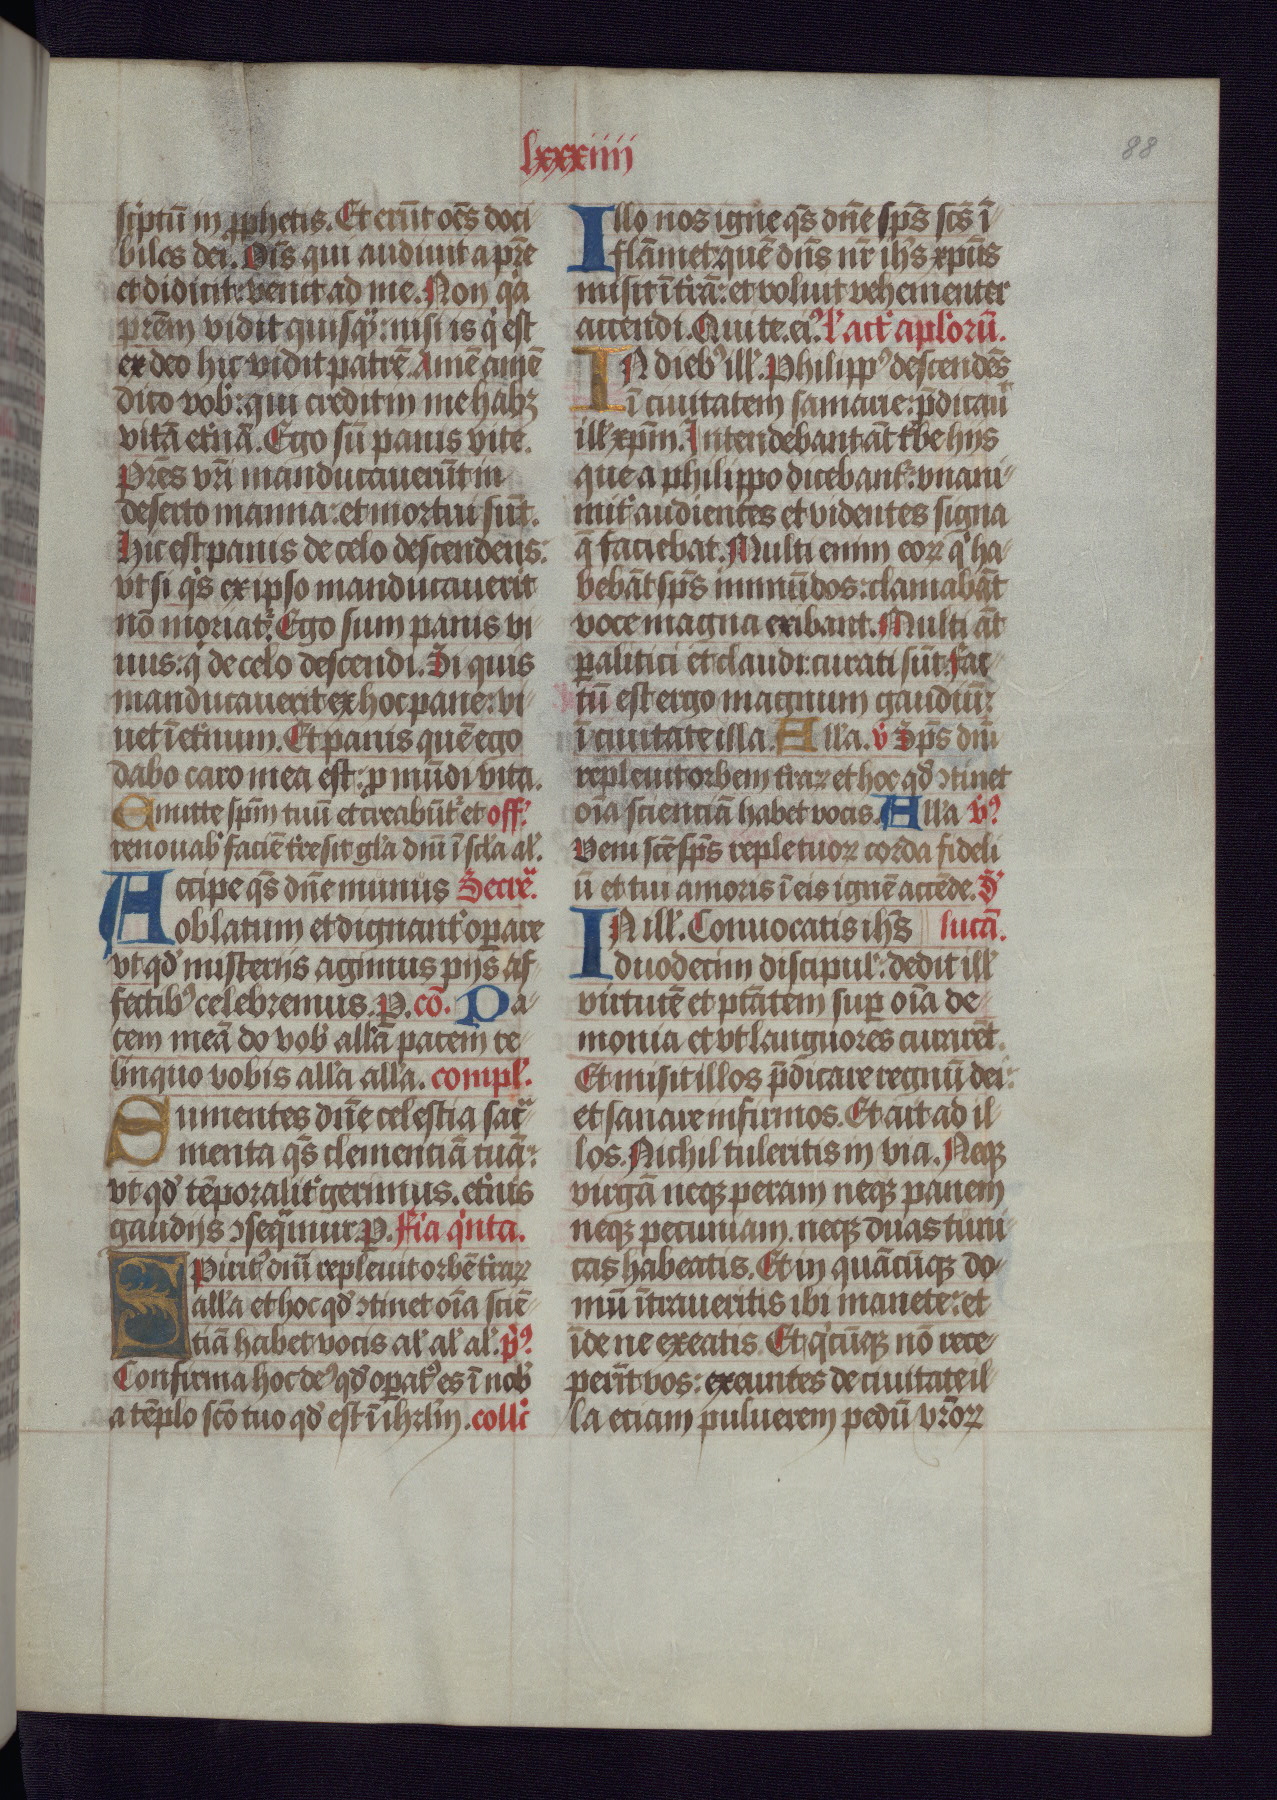 lxxxiiii
88
sc'ptū in ꝓphetis. Et erūt oēs doci
biles dei. Oīs qui audiuit a pr̄e
et didicit: venit ad me. Non q'a
prēm vidit quisq̄: nisi is q' est
ex deo hic vidit patrē. Amē amē
dico vob': qui credit in me habꝫ
vitā et'nā. Ego sū panis vite.
Pr̄es vr̄i manducauerūt in
deserto manna: et mortui sūt.
Hic est panis de celo descendens:
vt si q's ex ipso manducauerit
nō moriat'. Ego sum panis vi
uus: q' de celo descendi. Si quis
manducauerit ex hoc pane: vi-
uet ī et'num. Et panis quē ego
dabo caro mea est: ꝑ mūdi vita.
Emitte spm̄ tuū et creabūt' et off'.
renouab' faciē t're sit gl'a dn̄i ī scl'a al'.
Accipe qs̄ dn̄e munus Secre'.
oblatum et dignant' oꝑare
vt qd' misteriis agimus piis af
fectib' celebremus. P. cō. Pa-
cem meā do vob' all'a pacem re-
linquo vobis all'a all'a. compl'.
Sumentes dn̄e celestia sac'-
menta qs̄ clemenciā tuā:
vt qd' tēporalit' gerimus. et'nis
gaudiis ↄseq̄mur. P. Fr'ia q'nta.
Spirit' dn̄i repleuit orbē t'rarꝝ
all'a et hoc qd' ↄtinet oīa sciē-
tiā habet vocis al' al' al'. p̄'
Confirma hoc de' qd' oꝑat' es ī nob'
a tēplo scō tuo qd' est ī ihrl'm. coll'c
Illo nos igne qs̄ dn̄e sp̄s sc̄s ī
flāmet: quē dn̄s nr̄ ihs̄ xp̄us
misit ī t'rā: et voluit vehementer
accendi. Qui te. ei' l' act' apl'orū.
In dieb' ill'. Philipp' descendēs
ī ciuitatem samarie: p̄dicau'
ill' xpm̄. Intendebant āt t'be hiis
que a philippo dicebant': vnani-
mit' audientes et videntes signa
q̄ faciebat. Multi enim eorꝝ q' ha-
bebāt sp̄s inmūdos: clamabāt
voce magna exibant. Multi āt
ꝑalitici et claudi: curati sūt. Fac-
tū est ergo magnum gaudiū:
ī ciuitate illa. All'a. v' Sp̄s dn̄i
repleuit orbem t'rarꝝ et hoc qd' ↄtinet
oīa scienciā habet vocis. All'a v'
Veni scē sp̄s reple tuorꝝ corda fideli
ū et tui amoris ī eis ignē accēde. S'
In ill'. Conuocatis ihs̄ lucā.
duodecim discipul': dedit ill'
virtutē et ptātem suꝑ oīa de-
monia et vt languores curarēt.
Et misit illos p̄dicare regnū dei:
et sanare infirmos. Et ait ad il-
los. Nichil tuleritis in via. Neqꝫ
virgā neqꝫ peram neqꝫ panem
neqꝫ pecuniam. neqꝫ duas tuni-
cas habeatis. Et in quācūqꝫ do-
mū īt'aueritis ibi manete: et
īde ne exeatis. Et q'cūqꝫ nō rece-
perīt vos: exeuntes de ciuitate il-
la etiam puluerem pedū vr̄orꝝ